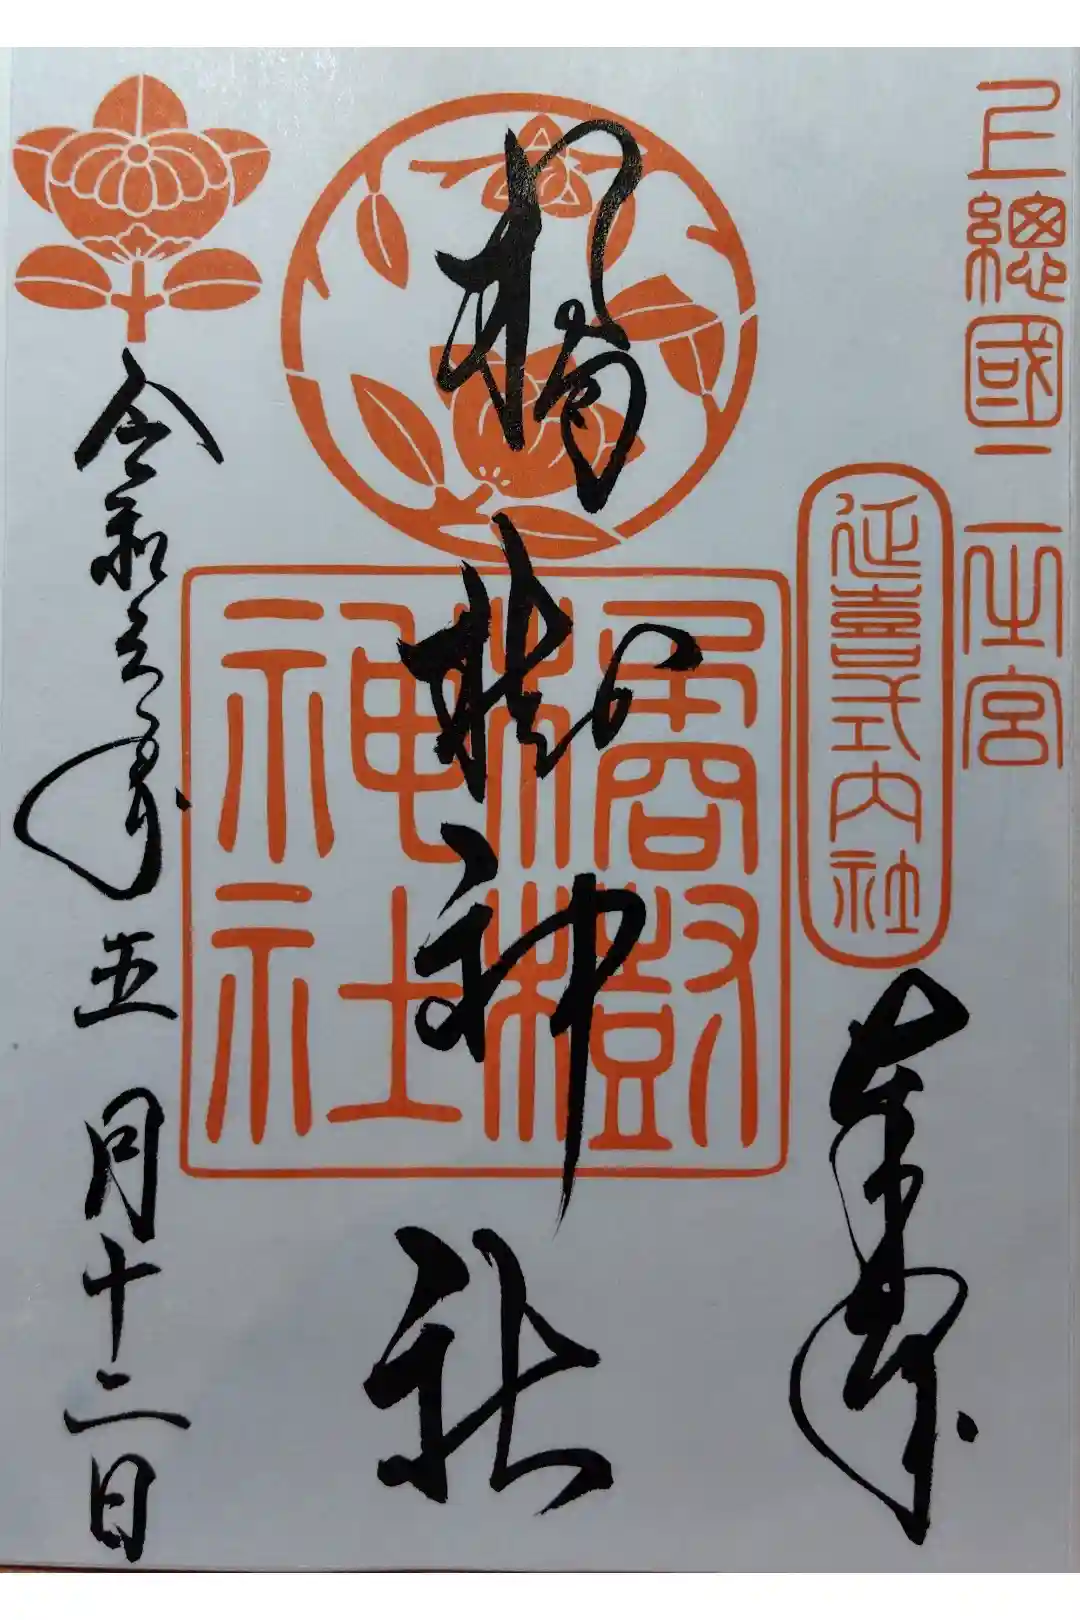 上總國二之宮
延喜式内社
奉拝
橘樹神社
橘樹神社
令和六年五月十二日